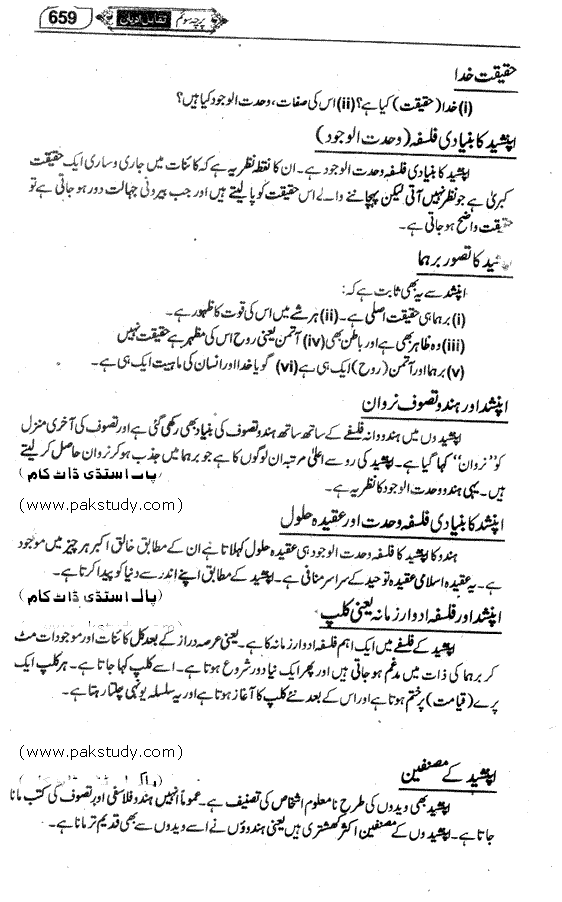 659 تقابل ادیان پرچہ سوئم
حقیقت خدا
(i) خدا (حقیقت) کیا ہے؟ (ii) اس کی صفات، وحدت الوجود کیا ہیں؟
اپنشید کا بنیادی فلسفہ (وحدت الوجود)
اپنشید کا بنیادی فلسفہ وحدت الوجود ہے۔ ان کا نقطہ نظر یہ ہے کہ کائنات میں جاری و ساری ایک حقیقت
کبریٰ ہے جو نظر نہیں آتی لیکن پہچاننے والے اس حقیقت کو پالیتے ہیں اور جب بیرونی جہالت دور ہو جاتی ہے تو
حقیقت واضح ہو جاتی ہے۔
شید کا تصور برہما
اپنشد سے یہ بھی ثابت ہے کہ:
(i) برہما ہی حقیقت اصلی ہے۔ (ii) ہر شے میں اس کی قوت کا ظہور ہے۔
(iii) وہ ظاہر بھی ہے اور باطن بھی (iv) آتمن یعنی روح اس کی مظہر ہے حقیقت نہیں
(v) برہما اور آتمن (روح) ایک ہی ہے (vi) گویا خدا اور انسان کی ماہیت ایک ہی ہے۔
اپنشد اور ہندو تصوف نروان
اپنشیدوں میں ہندوانہ فلسفے کے ساتھ ساتھ ہندو تصوف کی بنیاد بھی رکھی گئی ہے اور تصوف کی آخری منزل
کو "نروان" کہا گیا ہے۔ اپنشید کی رو سے اعلیٰ مرتبہ ان لوگوں کا ہے جو برہما میں جذب ہو کر نروان حاصل کر لیتے
ہیں۔ یہی ہندو وحدت الوجود کا نظریہ ہے۔ (پاک اسٹڈی ڈاٹ کام)
(www.pakstudy.com)
اپنشد کا بنیادی فلسفہ وحدت اور عقیدہ حلول
ہندو کا اپنشید کا فلسفہ وحدت الوجود ہی عقیدہ حلول کہلاتا ہے ان کے مطابق خالق اکبر ہر چیز میں موجود
ہے۔ یہ عقیدہ اسلامی عقیدہ توحید کے سراسر منافی ہے۔ اپنشید کے مطابق اپنے اندر سے دنیا کو پیدا کرتا ہے۔
(پاک اسٹڈی ڈاٹ کام)
اپنشد اور فلسفہ ادوار زمانہ یعنی کلپ
اپنشید کے فلسفے میں ایک اہم فلسفہ ادوار زمانہ کا ہے۔ یعنی عرصہ دراز کے بعد کل کائنات اور موجودات مٹ
کر برہما کی ذات میں مدغم ہو جاتی ہیں اور پھر ایک نیا دور شروع ہوتا ہے۔ اسے کلپ کہا جاتا ہے۔ ہر کلپ ایک
پرے (قیامت) پر ختم ہوتا ہے اور اس کے بعد نئے کلپ کا آغاز ہوتا ہے اور یہ سلسلہ یونہی چلتا رہتا ہے۔
(www.pakstudy.com)
اپنشید کے مصنفین
اپنشید بھی ویدوں کی طرح نامعلوم اشخاص کی تصنیف ہے۔ عموماً انہیں ہندو فلاسفی اور تصوف کی کتب مانا
جاتا ہے۔ اپنشیدوں کے مصنفین اکثر کھشتری ہیں یعنی ہندوؤں نے اسے ویدوں سے بھی قدیم تر مانا ہے۔